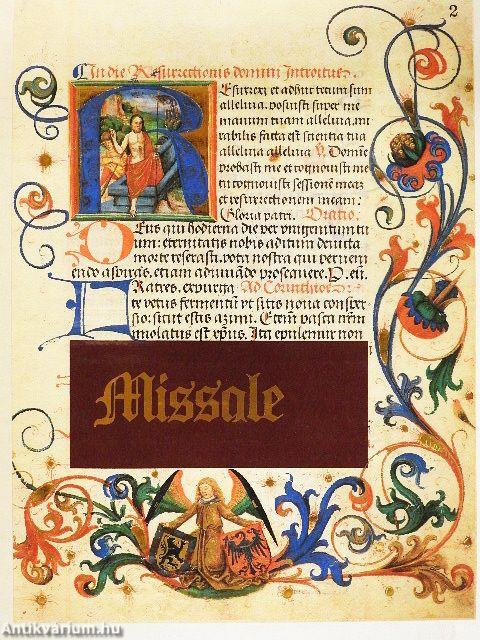 2
In die Resurrectionis domini Introitus.
Resurrexi et adhuc tecum sum
alleluia. posuisti super me
manum tuam alleluia. mi
rabilis facta est scientia tua
alleluia alleluia V Domine
probasti me et cognouisti me
tu cognouisti sessionem meam
et resurrectionem meam:
Gloria patri. Oratio.
Deus qui hodierna die per vnigenitum tu
um: eternitatis nobis aditum deuicta
morte reserasti. vota nostra que preueni
endo aspiras. etiam adiuuando prosequere. P. eu.
Fratres. expurga Ad Corinthios
te vetus fermentum vt sitis noua consper
sio: sicut estis azimi. Etenim pasca nrm
immolatus est xpus. Itaq epulemur non
Missale
Antikvárium.hu